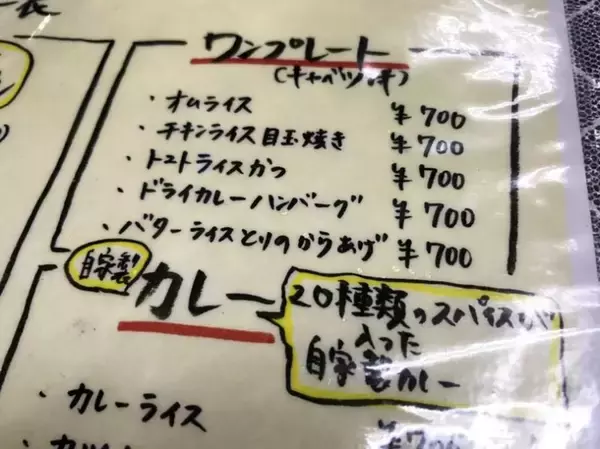 表
ワンプレート
(キャベツ付)
・オムライス ¥700
・チキンライス目玉焼き ¥700
・トマトライスかつ ¥700
・ドライカレーハンバーグ ¥700
・バターライスとりのからあげ ¥700
自家製
カレー
20種類のスパイスが
入った
自家製カレー
・カレーライス ¥700